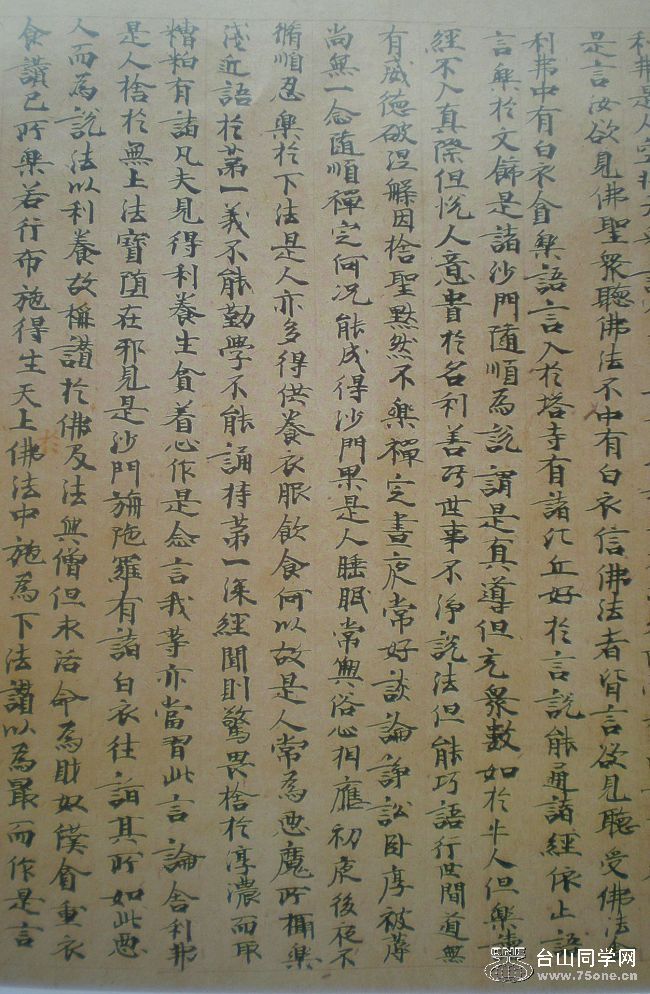 利弗是人
是言汝欲見佛聖衆聽佛法不中有白衣信佛法者皆言欲見聽受佛法
利弗中有白衣貪樂語言入於塔寺有諸比丘好於言說能通諸經依止語
言樂於文飾是諸沙門隨順為說謂是真導但充衆數如於牛人但樂讀
經不入真際但悅人意貴於名利善巧世事不淨說法但能巧語行世間道無
有威德破涅槃因捨聖黙然不樂禪定晝夜常好談論諍訟卧厚被蓐
尚無一念隨順禪定何況能成得沙門果是人睡眠常與俗心相應初夜後夜不
脩順忍樂於下法是人亦多得供養衣服飲食何以故是人常為惡魔所攝樂
淺近語於苐一義不能勤學不能誦持苐一深經聞則驚畏捨於淳濃而取
糟粕有諸凡夫見得利養生貪着心作是念言我等亦當習此言論舍利弗
是人捨於無上法寶墮在邪見是沙門旃陁羅有諸白衣往詣其所如此惡
人而為說法以利養故稱讃於佛及法與僧但求活命為財奴僕貪重衣
食讃已所樂若行布施得生天上佛法中施為下法讃以為㝡而作是言
於
台山同学网
www.75one.cn